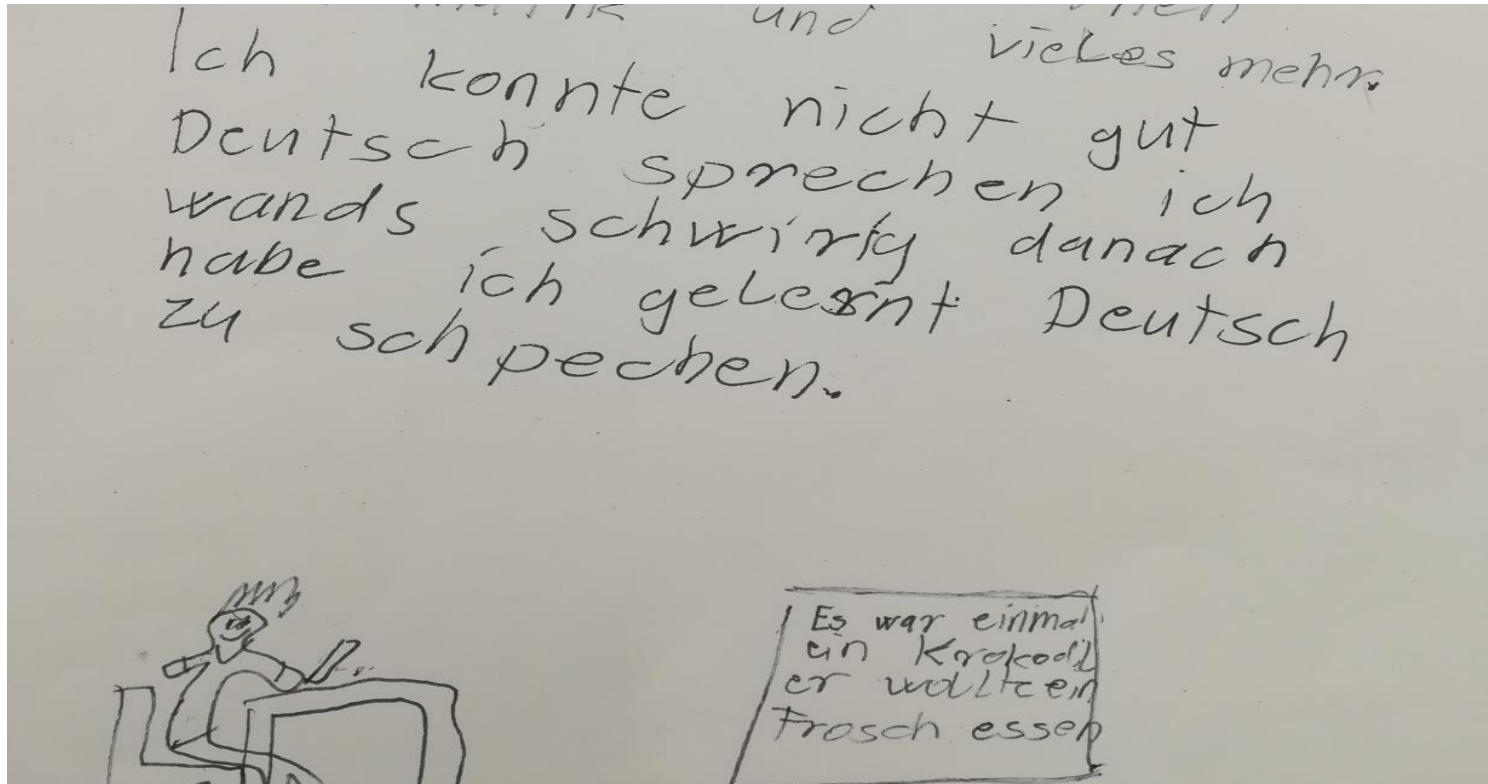 und
vieles mehr.
Ich konnte nicht gut
Deutsch sprechen ich
wands schwirig danach
habe ich gelernt Deutsch
zu schpechen.
Es war einmal
ein Krokodil
er wollte ein
Frosch essen